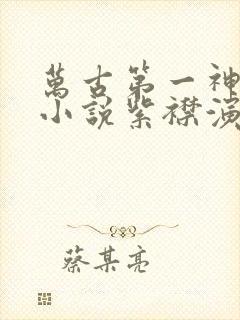 萬古第一神
小說紫襟演
蔡某亮